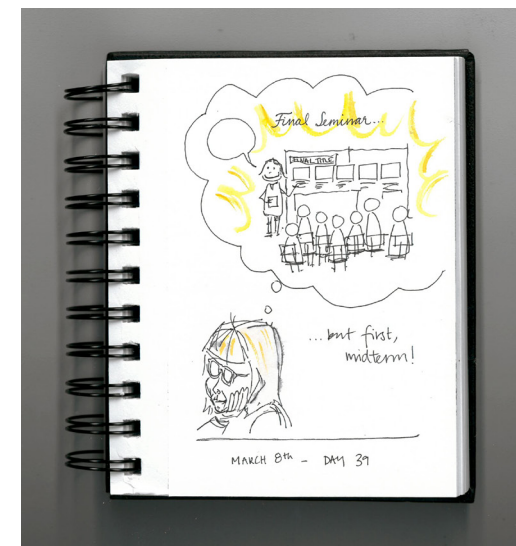 Final Seminar...
...but first,
midterm!
MARCH 8th - DAY 39